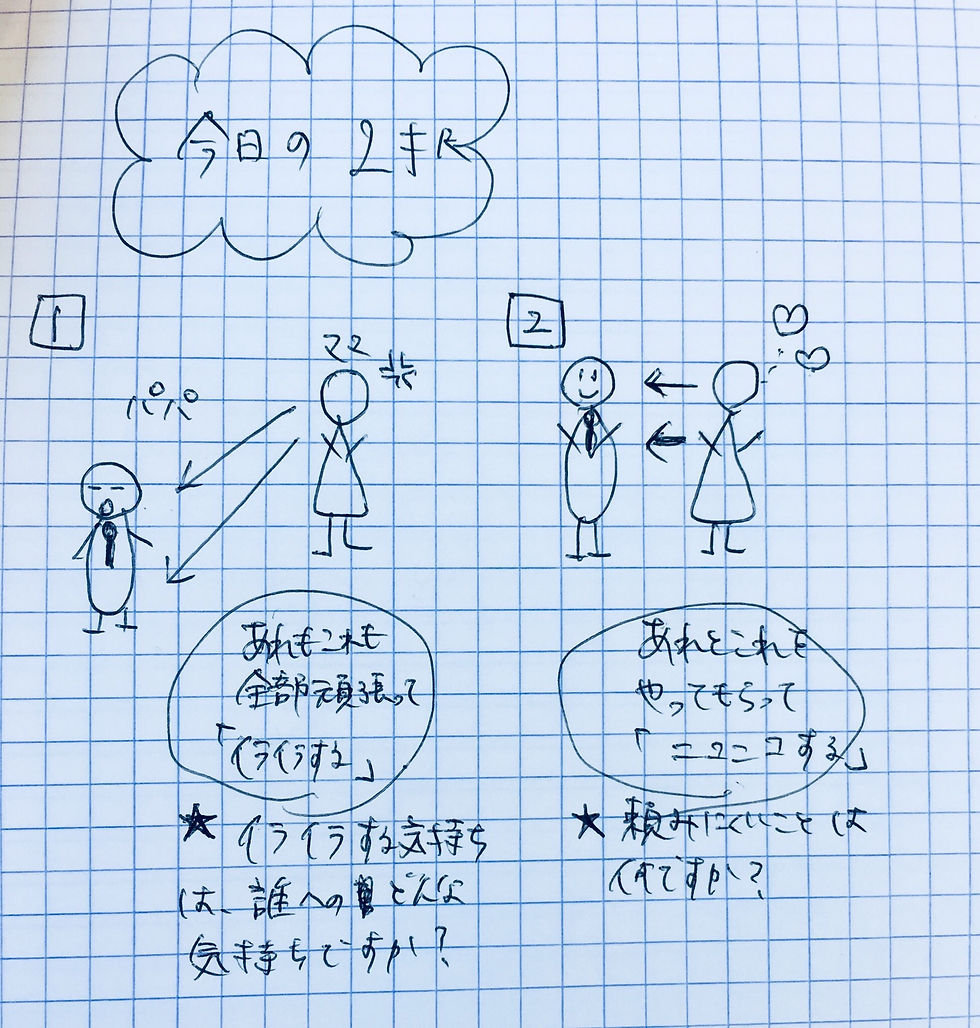 今日の2択
1
ママ
パパ
あれもこれも
全部頑張って
「イライラする」
★イライラする気持ち
は、誰への どんな
気持ちですか?
2
あれとこれを
やってもらって
「ニコニコする」
★頼みにくいことは
何ですか?